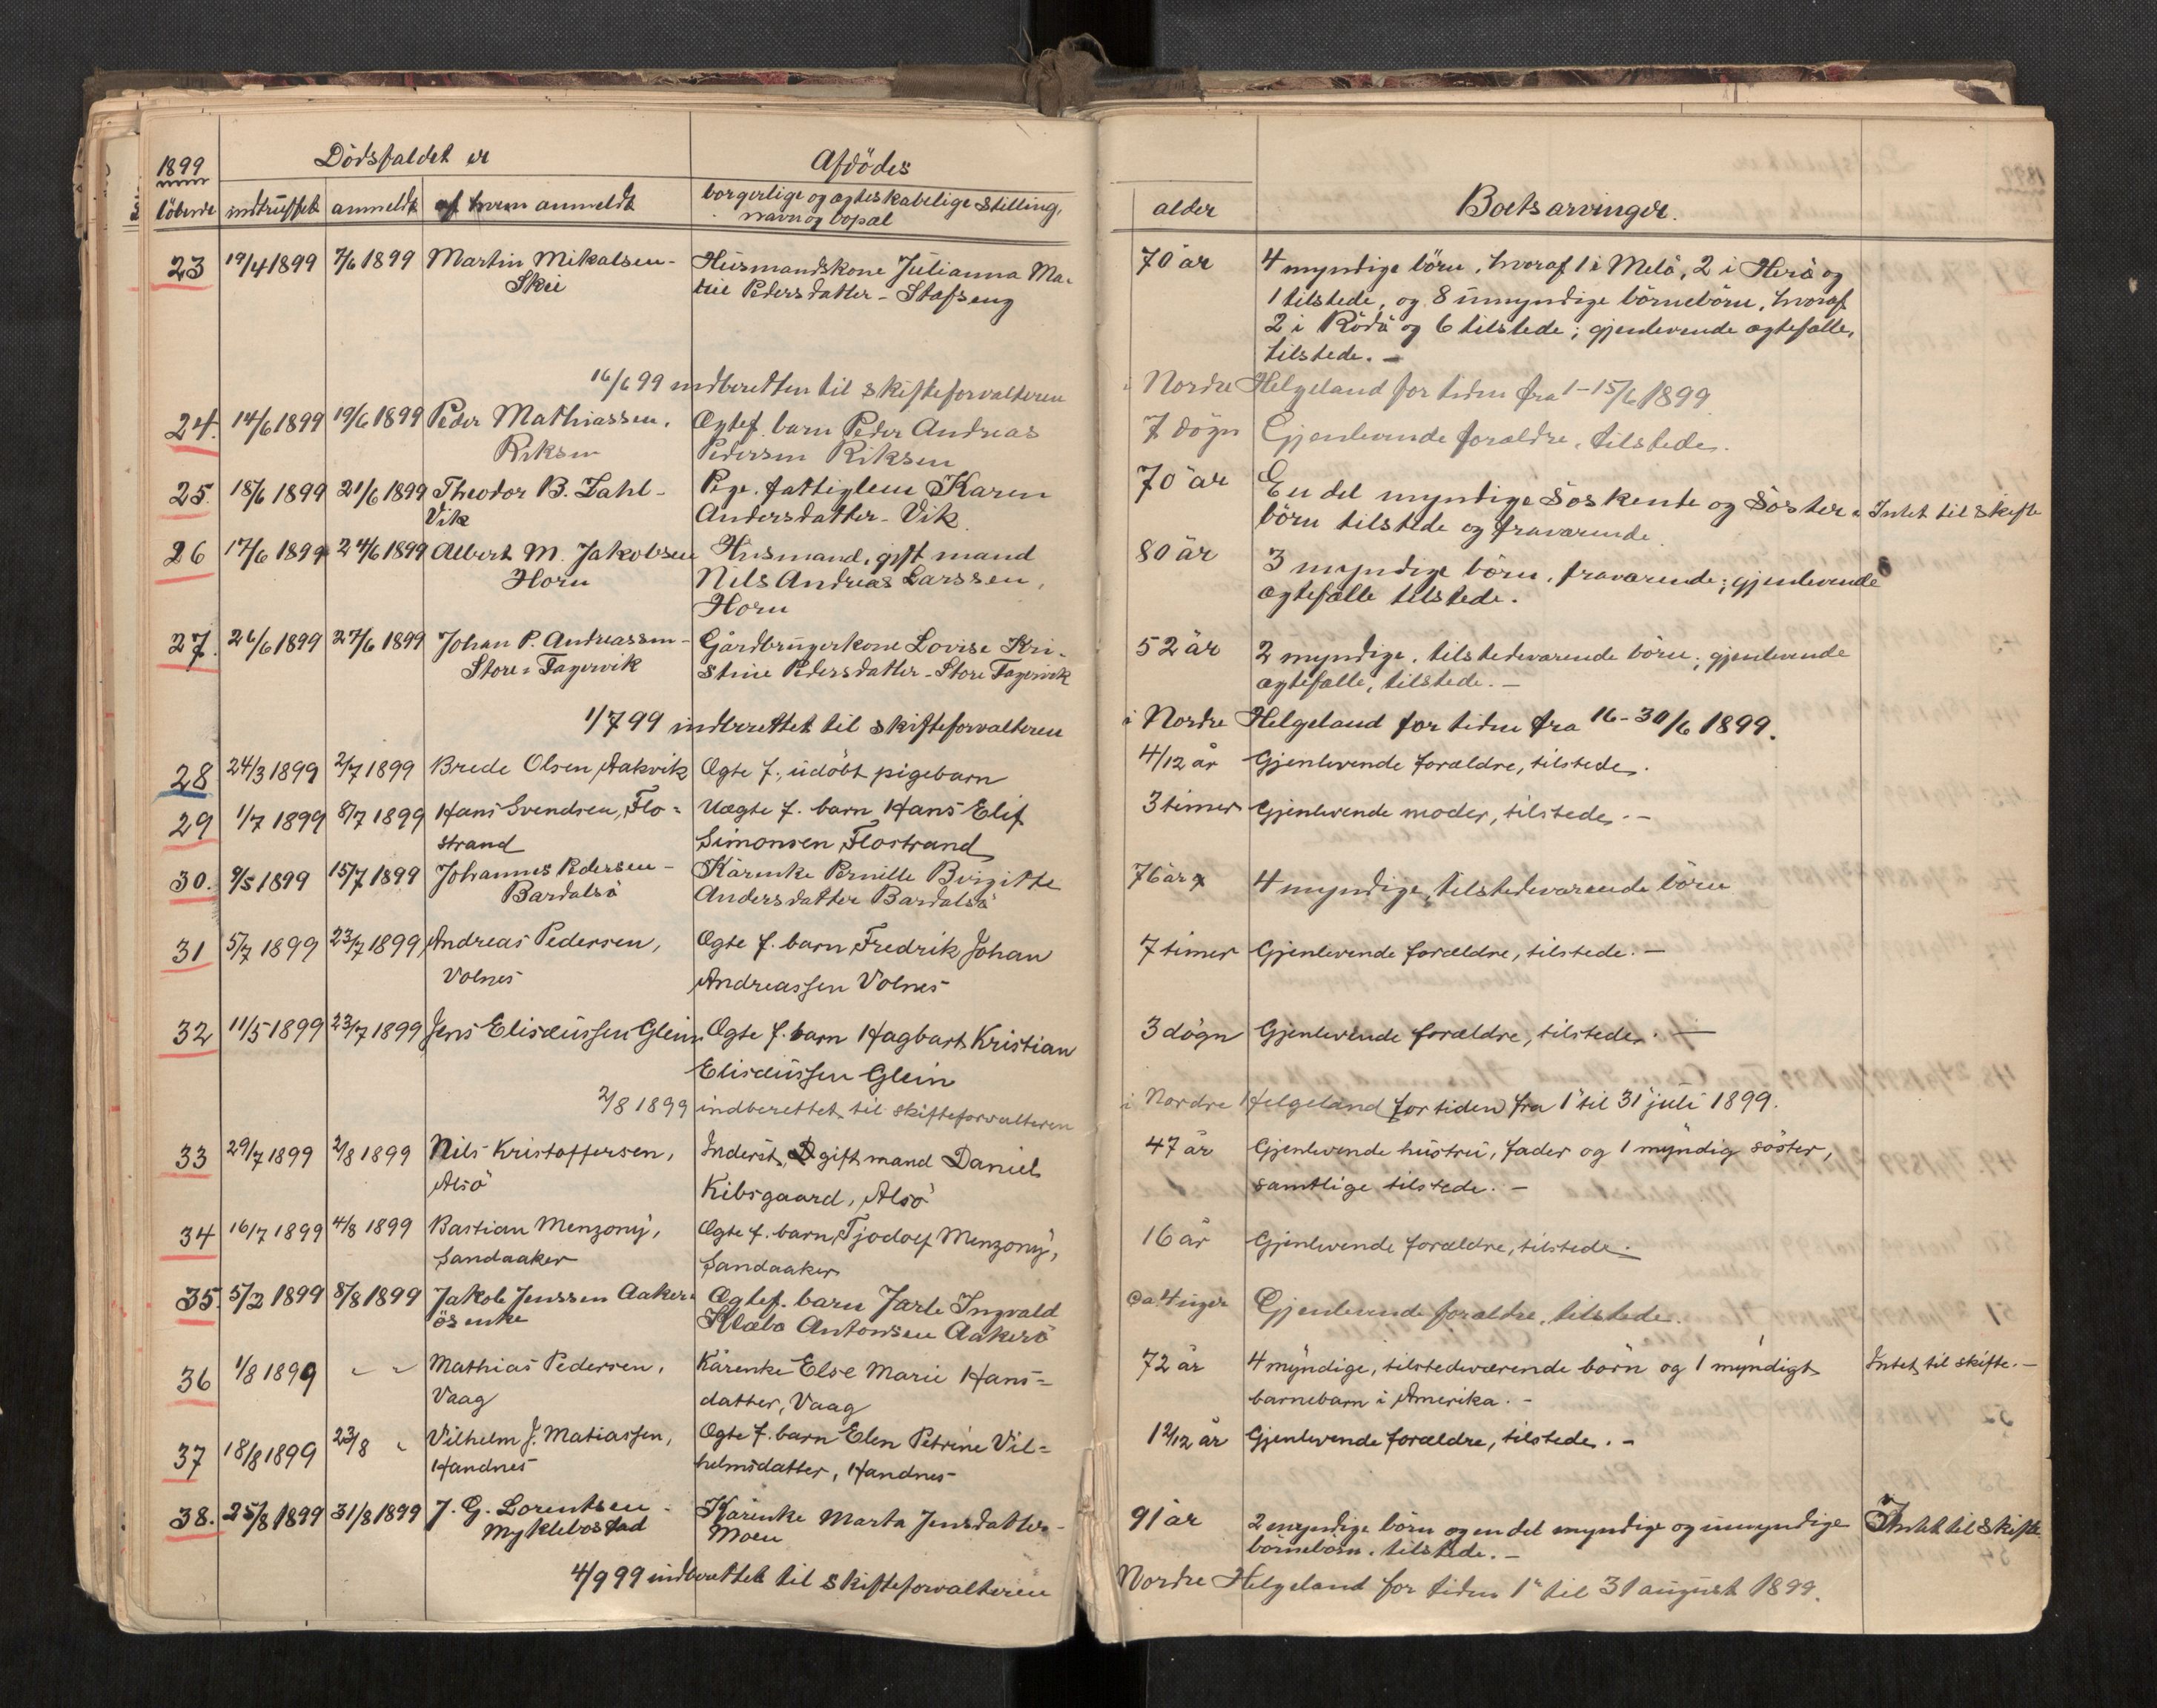 1899
Dödsfaldet er
Afdödes
löbende indtruffet anmeldt af hvem anmeldt borgerlige og ægteskabelige stilling,
navn og bopæl
alder
Boets arvinger.
23 19/4 1899 7/6 1899 Martin Mikalsen - Husmandskone Julianna Ma- 70 år 4 myndige börn, hvoraf 1 i Melö, 2 i Herö og
Skei trie Pedersdatter - Stofseng 1 tilstede, og 8 umyndige börnebörn, hvoraf
2 i Rödö og 6 tilstede; gjenlevende ægtefælle,
tilstede. -
16/6 99 indberettet til skifteforvalteren i Nordre Helgeland for tiden fra 1-15/6 1899
24. 14/6 1899 19/6 1899 Peder Mathiassen, Ægtef. barn Peder Andreas 7 dögn Gjenlevende forældre, tilstede.
Riksen Pedersen Riksen
25. 18/6 1899 21/6 1899 Theodor B. Zahl - Pige, fattiglem Karen 70 år En del myndige söskende og söster- Intet til skifte
Vik Andersdatter - Vik börn tilstede og fraværende.
26 17/6 1899 24/6 1899 Albert M. Jakobsen Husmand, gift mand 80 år 3 myndige börn, fraværende; gjenlevende
Horn Nils Andreas Larssen, ægtefælle tilstede.
Horn
27. 26/6 1899 27/6 1899 Johan P. Andreassen - Gårdbrugerkone Lovise Kri- 52 år 2 myndige, tilstedeværende börn; gjenlevende
Store-Fagervik stine Pedersdatter - Store Fagervik ægtefælle, tilstede. -
1/7 99 indberettet til skifteforvalteren i Nordre Helgeland for tiden fra 16-30/6 1899.
28 24/3 1899 2/7 1899 Brede Olsen, Aakvik Ægte f., udöbt pigebarn 4/12 år Gjenlevende forældre, tilstede.
29 1/7 1899 8/7 1899 Hans Svendsen, Flo= Uægte f. barn Hans Elif 3 timer Gjenlevende moder, tilstede. -
strand Simonsen, Flostrand
30. 9/5 1899 15/7 1899 Johannes Pedersen - Kårenke Pernille Birgitte 76 år 4 myndige, tilstedeværende börn
Bardalsö Andersdatter Bardalsö
31 5/7 1899 23/7 1899 Andreas Pedersen, Ægte f. barn, Fredrik Johan 7 timer Gjenlevende forældre, tilstede. -
Volnes Andreassen Volnes
32 11/5 1899 23/7 1899 Jens Elisæussen Glein Ægte f. barn Hagbart Kristian 3 dögn Gjenlevende forældre, tilstede. -
Elisæussen Glein
2/8 1899 indberettet til skifteforvalteren i Nordre Helgeland for tiden fra 1' til 31' juli 1899.
33 29/7 1899 2/8 1899 Nils Kristoffersen, Inderst, gift mand Daniel 47 år Gjenlevende hustru, fader og 1 myndig söster,
Alsö Kibsgaard, Alsö samtlige tilstede. -
34 16/7 1899 4/8 1899 Bastian Menzony, Ægte f. barn, Tjodolf Menzony, 16 år Gjenlevende forældre, tilstede.
Sandaaker Sandaaker
35. 5/2 1899 8/8 1899 Jakob Jenssen Aaker- Ægtef. barn Jarle Ingvald Ca 4 uger Gjenlevende forældre, tilstede.
ös enke Klæbo Antonsen Aakerö
36 1/8 1899 " " Mathias Pedersen, Kårenke Else Marie Hans= 72 år 4 myndige, tilstedeværende börn og 1 myndigt Intet til skifte. -
Vaag datter, Vaag barnebarn i Amerika. -
37 18/8 1899 23/8 " Vilhelm J. Matiassen, Ægte f. barn Elen Petrine Vil= 1 2/12 år Gjenlevende forældre, tilstede. -
Handnes helmsdatter, Handnes
38. 25/8 1899 31/8 1899 J. G. Lorentsen - Kårenke Marta Jensdatter - 91 år 2 myndige börn og en del myndige og umyndige Intet til skifte
Myklebostad Moen börnebörn, tilstede. -
4/9 99 indberettet til skifteforvalteren Nordre Helgeland for tiden 1' til 31 august 1899.